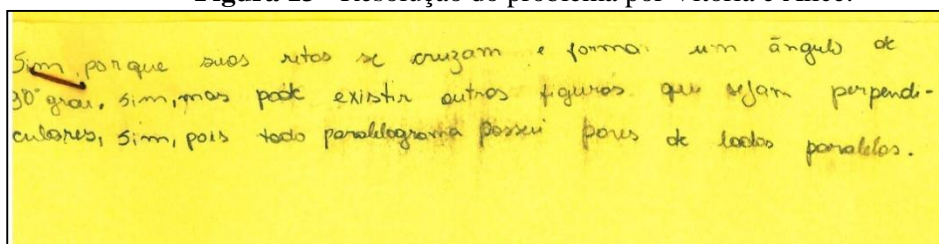 Figura 13 - Resolução do problema por Vitória e Alice.
Sim, porque suas retas se cruzam e forma um ângulo de
90° grau. sim, mas pode existir outras figuras que sejam perpendi-
culares, sim, pois todo paralelograma possui pares de lados paralelos.